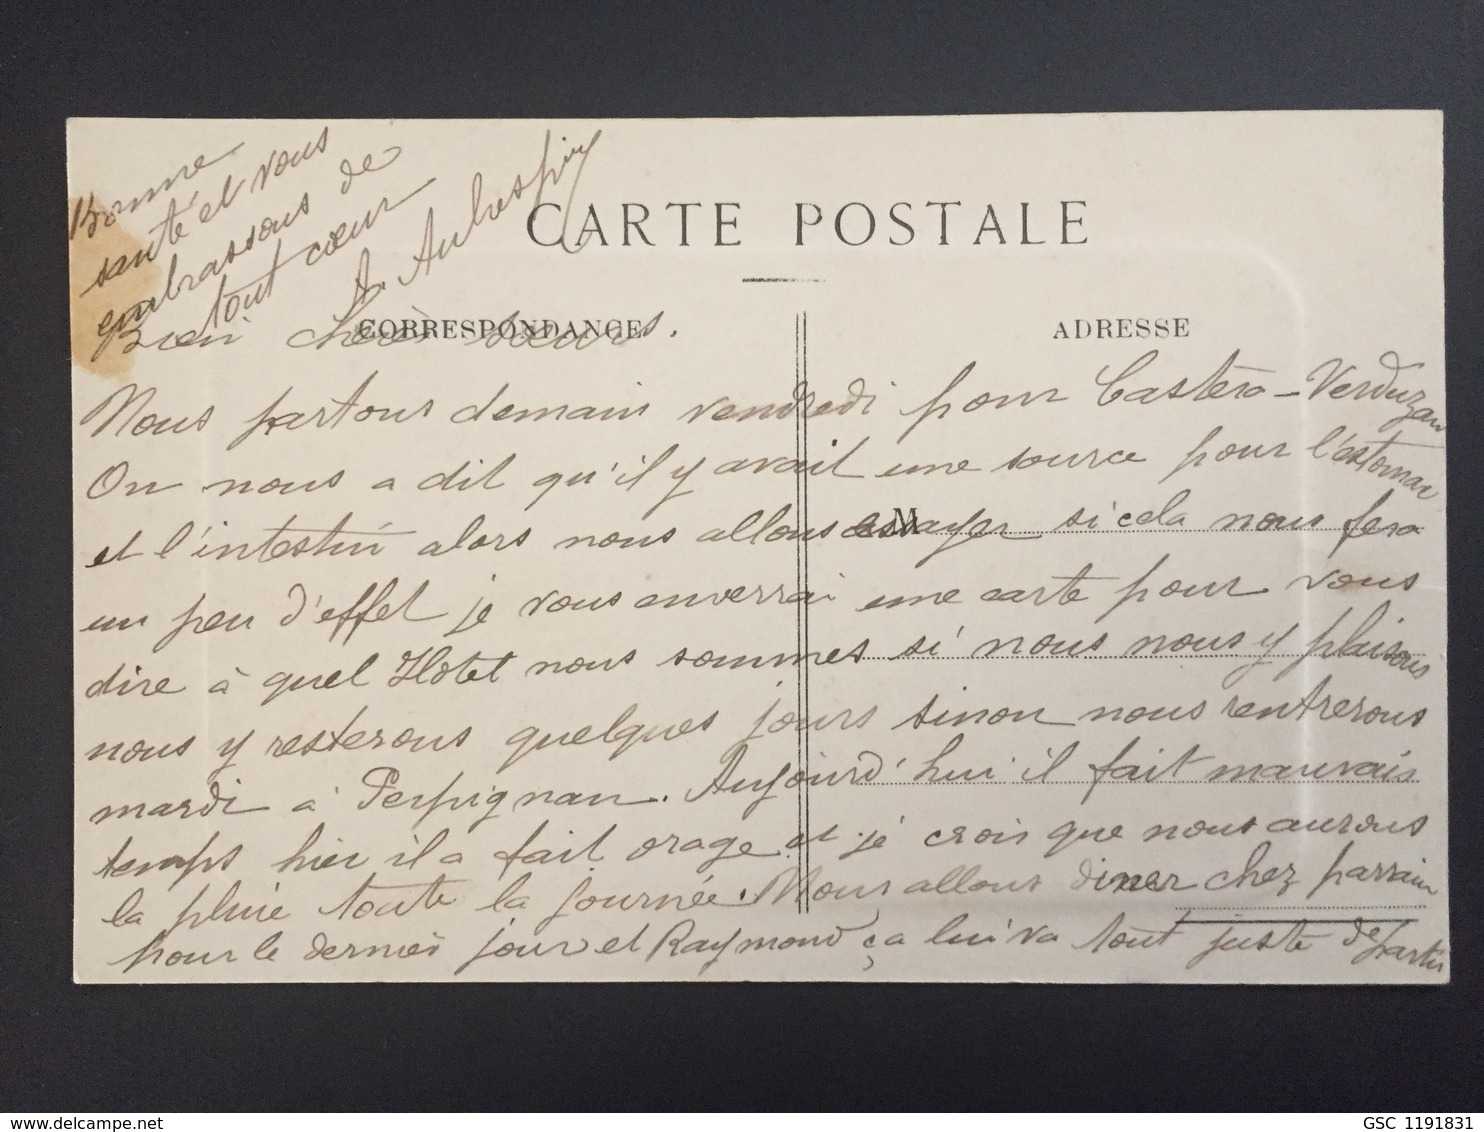 Bonne
santé et vous
embrassons de
tout cœur
A. Aubespin
CARTE POSTALE
CORRESPONDANCE
ADRESSE
Bien chères sœurs.
Nous partons demain vendredi pour Castéra-Verduzan
On nous a dit qu'il y avait une source pour l'estomac
et l'intestin alors nous allons essayer si cela nous fera
M
un peu d'effet je vous enverrai une carte pour vous
dire à quel Hotel nous sommes si nous nous y plaisons
nous y resterons quelques jours sinon nous rentrerons
mardi à Perpignan. Aujourd'hui il fait mauvais
temps hier il a fait orage et je crois que nous aurons
la pluie toute la journée. Nous allons diner chez parrain
pour le dernier jour et Raymond ça lui va tout juste de partir
www.delcampe.net
GSC 1191831